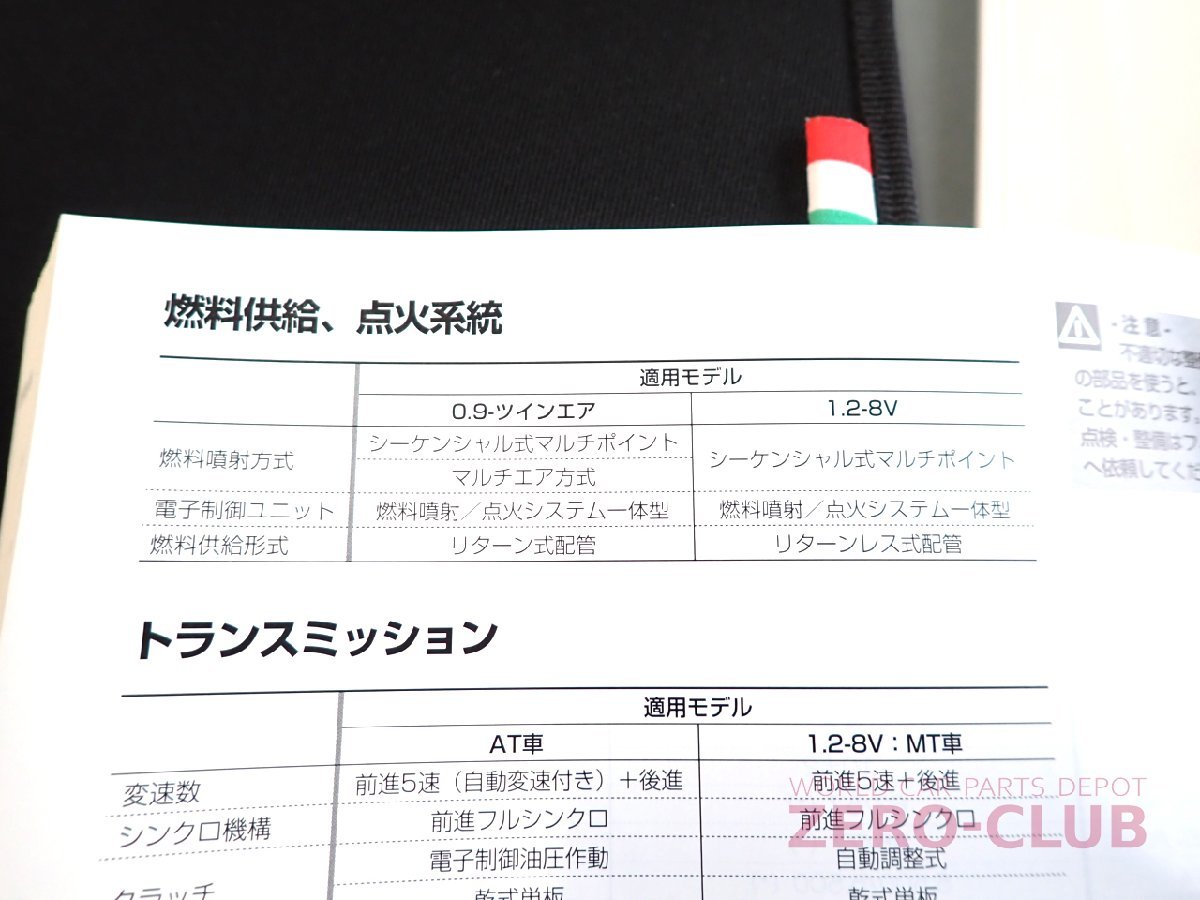 燃料供給、点火系統
適用モデル
0.9-ツインエア 1.2-8V
燃料噴射方式 シーケンシャル式マルチポイント
マルチエア方式 シーケンシャル式マルチポイント
電子制御ユニット 燃料噴射／点火システム一体型 燃料噴射／点火システム一体型
燃料供給形式 リターン式配管 リターンレス式配管
トランスミッション
適用モデル
AT車 1.2-8V：MT車
変速数 前進5速（自動変速付き）＋後進 前進5速＋後進
シンクロ機構 前進フルシンクロ 前進フルシンクロ
電子制御油圧作動 自動調整式
クラッチ 乾式単板 乾式単板
-注意-
不適切な整
の部品を使うと、
ことがあります。
点検・整備はフ
へ依頼してくだ
WORLD CAR PARTS DEPOT
ZERO-CLUB